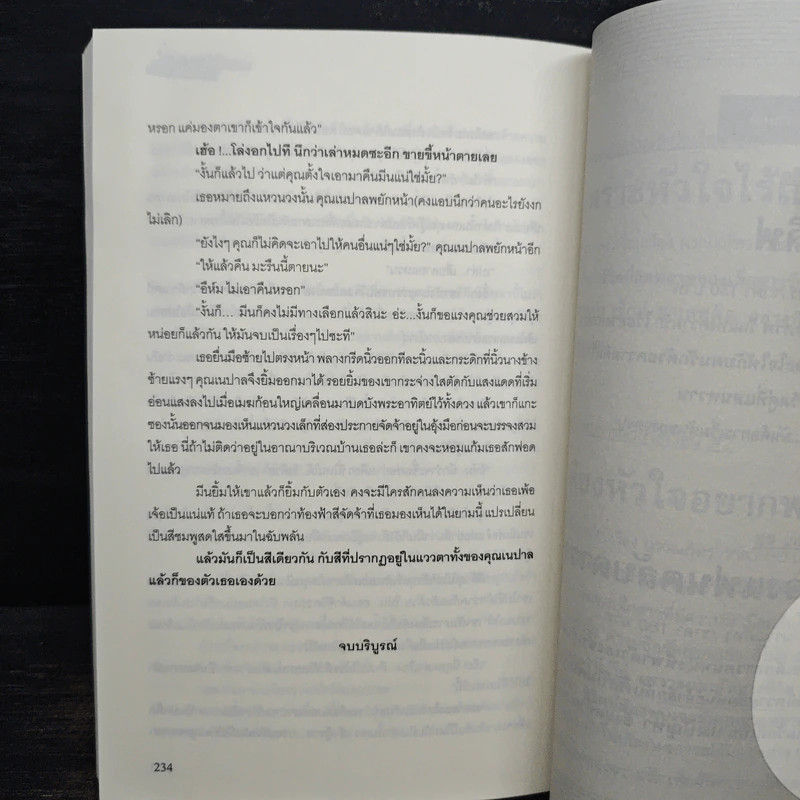 หรอก แค่มองตาเขาก็เข้าใจกันแล้ว"
เฮ้อ !...โล่งอกไปที นึกว่าเล่าหมดซะอีก ขายขี้หน้าตายเลย
"งั้นก็แล้วไป ว่าแต่คุณตั้งใจเอามาคืนมีนแน่ใช่มั้ย?"
เธอหมายถึงแหวนวงนั้น คุณเนปาลพยักหน้า(คงแอบนึกว่าคนอะไรยังงก
ไม่เลิก)
"ยังไงๆ คุณก็ไม่คิดจะเอาไปให้คนอื่นแน่ๆใช่มั้ย?" คุณเนปาลพยักหน้าอีก
"ให้แล้วคืน มะรืนนี้ตายนะ"
"อืห์ม ไม่เอาคืนหรอก"
"งั้นก็... มีนก็คงไม่มีทางเลือกแล้วสินะ อ่ะ...งั้นก็ขอแรงคุณช่วยสวมให้
หน่อยก็แล้วกัน ให้มันจบเป็นเรื่องๆไปซะที"
เธอยื่นมือซ้ายไปตรงหน้า พลางกรีดนิ้วออกทีละนิ้วและกระดิกที่นิ้วนางข้าง
ซ้ายแรงๆ คุณเนปาลจึงยิ้มออกมาได้ รอยยิ้มของเขากระจ่างใสตัดกับแสงแดดที่เริ่ม
อ่อนแสงลงไปเมื่อเมฆก้อนใหญ่เคลื่อนมาบดบังพระอาทิตย์ไว้ทั้งดวง แล้วเขาก็แกะ
ซองนั้นออกจนมองเห็นแหวนวงเล็กที่ส่องประกายจัดจ้าอยู่ในอุ้งมือก่อนจะบรรจงสวม
ให้เธอ นี่ถ้าไม่ติดว่าอยู่ในอาณาบริเวณบ้านเธอล่ะก็ เขาคงจะหอมแก้มเธอสักฟอด
ไปแล้ว
มีนยิ้มให้เขาแล้วก็ยิ้มกับตัวเอง คงจะมีใครสักคนลงความเห็นว่าเธอเพ้อ
เจ้อเป็นแน่แท้ ถ้าเธอจะบอกว่าท้องฟ้าสีจัดจ้าที่เธอมองเห็นได้ในยามนี้ แปรเปลี่ยน
เป็นสีชมพูสดใสขึ้นมาในฉับพลัน
แล้วมันก็เป็นสีเดียวกัน กับสีที่ปรากฏอยู่ในแววตาทั้งของคุณเนปาล
แล้วก็ของตัวเธอเองด้วย
จบบริบูรณ์
234